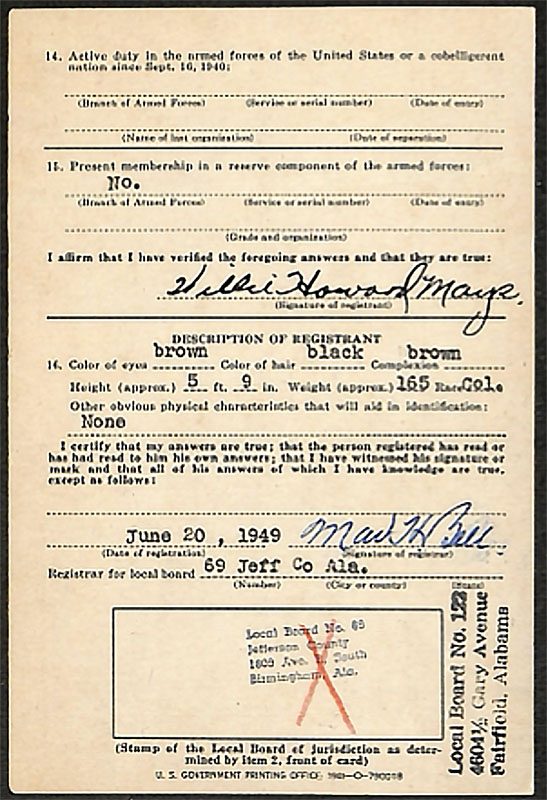 14. Active duty in the armed forces of the United States or a cobelligerent
nation since Sept. 16, 1940:
(Branch of Armed Forces) (Service or serial number) (Date of entry)
(Name of last organization) (Date of separation)
15. Present membership in a reserve component of the armed forces:
No.
(Branch of Armed Forces) (Service or serial number) (Date of entry)
(Grade and organization)
I affirm that I have verified the foregoing answers and that they are true:
Willie Howard Mays.
(Signature of registrant)
DESCRIPTION OF REGISTRANT
16. Color of eyes brown Color of hair black Complexion brown
Height (approx.) 5 ft. 9 in. Weight (approx.) 165 Race Col.
Other obvious physical characteristics that will aid in identification:
None
I certify that my answers are true; that the person registered has read or
has had read to him his own answers; that I have witnessed his signature or
mark and that all of his answers of which I have knowledge are true,
except as follows:
June 20, 1949 Mack H Bell
(Date of registration) (Signature of registrar)
Registrar for local board 69 Jeff Co Ala.
(Number) (City or county) (State)
Local Board No. 69
Jefferson County
1609 Ave. South
Birmingham, Ala.
Local Board No. 122
4604½ Gary Avenue
Fairfield, Alabama
(Stamp of the Local Board of jurisdiction as deter-
mined by item 2, front of card)
U. S. GOVERNMENT PRINTING OFFICE: